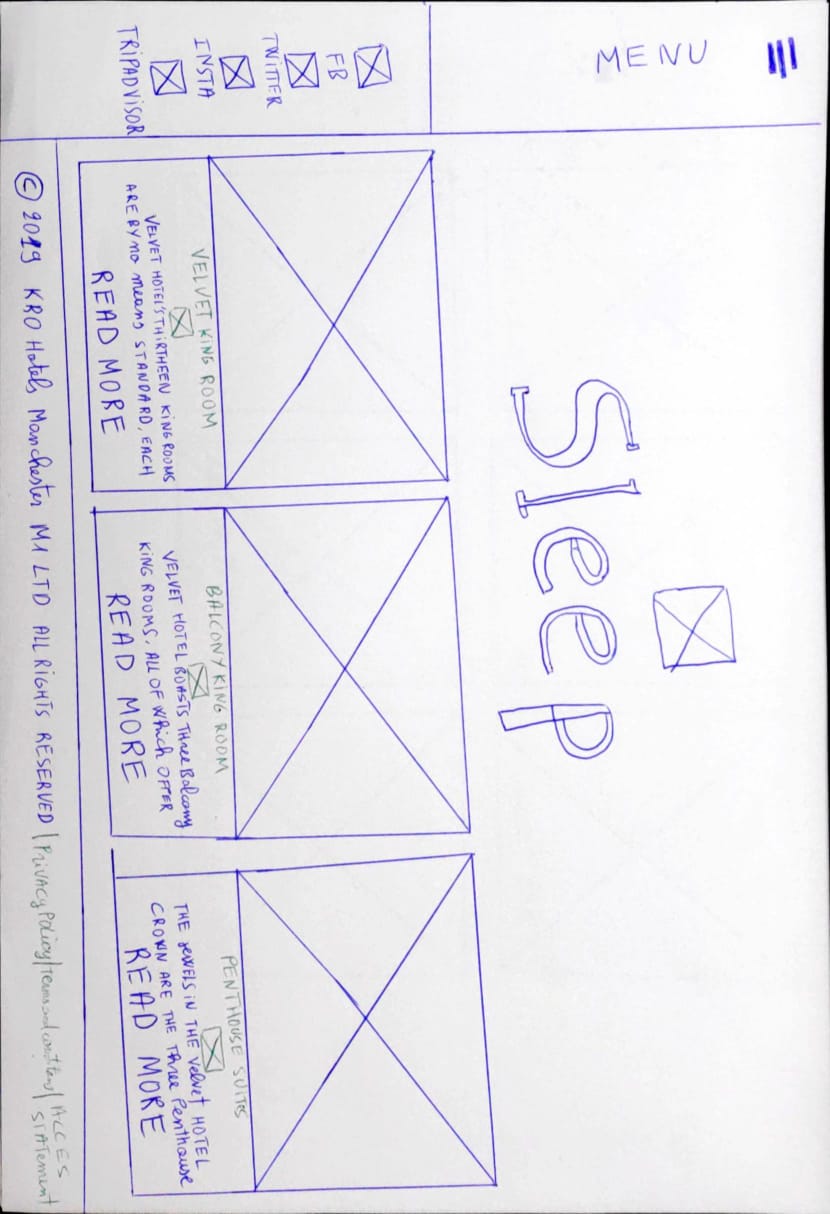 MENU
FB
TWITTER
INSTA
TRIPADVISOR
Sleep
VELVET KING ROOM
VELVET HOTEL'S THIRTHEEN KING ROOMS
ARE BY no means STANDARD, EACH
READ MORE
BALCONY KING ROOM
VELVET HOTEL BOASTS Three Balcony
KING ROOMS, ALL OF Which OFFER
READ MORE
PENTHOUSE SUITES
THE JEWELS IN THE Velvet HOTEL
CROWN ARE THE Three Penthouse
READ MORE
© 2019 KRO Hotels Manchester M1 LTD ALL RIGHTS RESERVED | PRIVACY POLICY | Terms and conditions | ACCES
STATEMENT